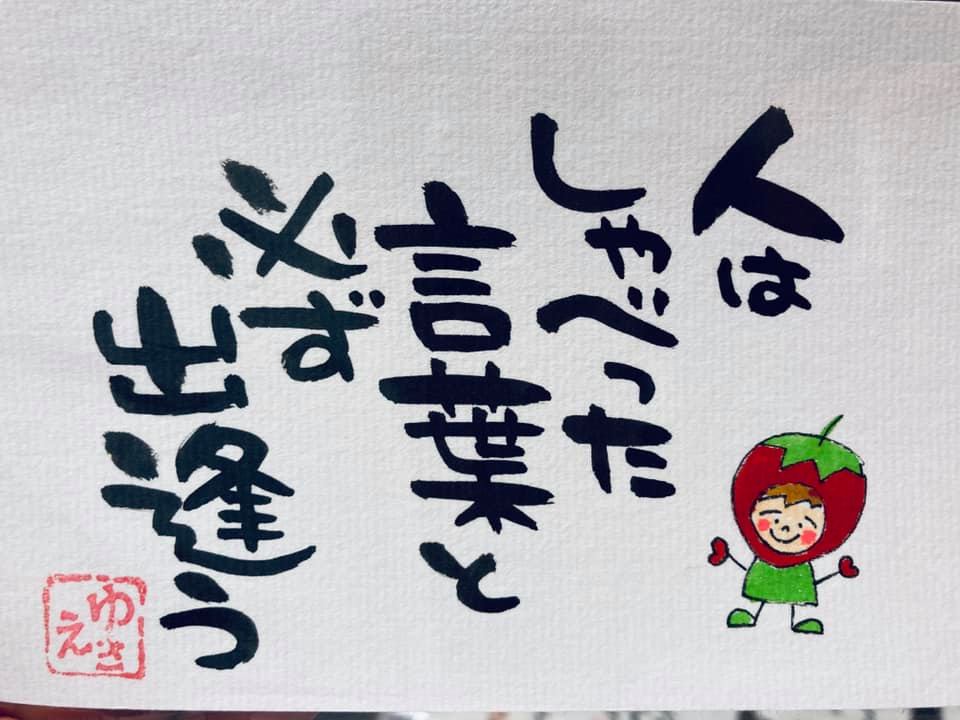 人は
しゃべった
言葉と
必ず
出逢う
ゆき
え